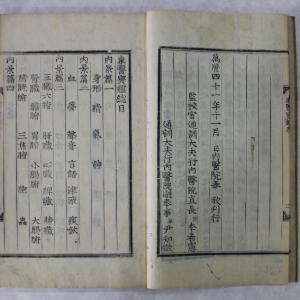 萬曆四十一年十一月 日內醫院奉 敎刊行
監校官通訓大夫行內醫院直長臣李希憲
通訓大夫行內醫院副奉事臣尹知微
東醫寶鑑總目
內景篇一
身形 精 氣 神
內景篇二
血 夢 聲音 言語 津液 痰飮
內景篇三
五臟六腑 肝臟 心臟 脾臟 肺臟
腎臟 膽腑 胃腑 小腸腑 大腸腑
膀胱腑 三焦腑 胞 蟲